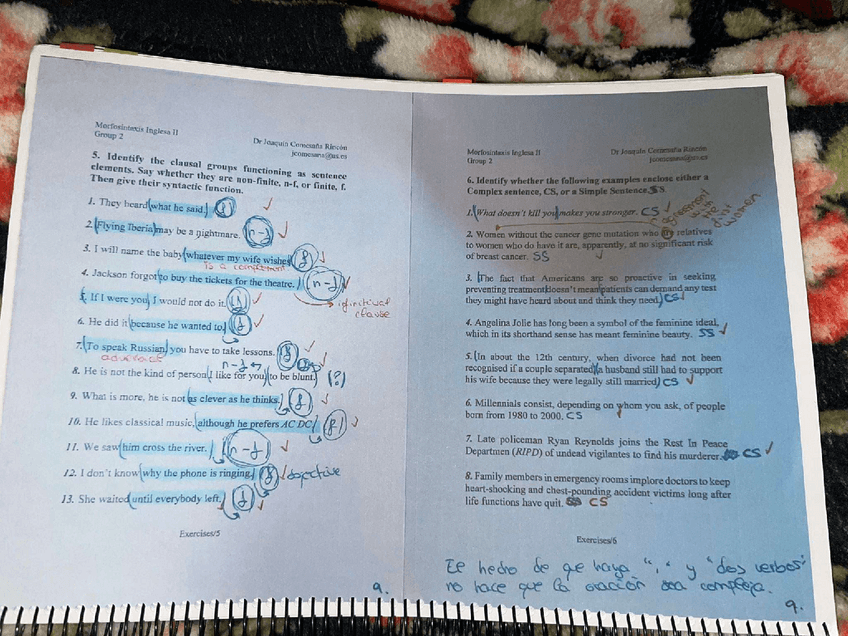 Morfosintaxis Inglesa II
Group 2
Dr Joaquín Comesaña Rincón
jcomesana@us.es
5. Identify the clausal groups functioning as sentence
elements. Say whether they are non-finite, n-f, or finite, f.
Then give their syntactic function.
1. They heard what he said. f
2. Flying Iberia may be a nightmare. n-f
3. I will name the baby whatever my wife wishes f
is a complement
4. Jackson forgot to buy the tickets for the theatre. n-f
infinitival
clause
5. If I were you, I would not do it.
6. He did it because he wanted to. f
7. To speak Russian, you have to take lessons. f
n-f
8. He is not the kind of person I like for you to be blunt. (?)
9. What is more, he is not as clever as he thinks. f
10. He likes classical music, although he prefers AC DC f
11. We saw him cross the river. n-f
12. I don't know why the phone is ringing. f objective
13. She waited until everybody left. f
Exercises/5
9.
Morfosintaxis Inglesa II
Group 2
Dr Joaquín Comesaña Rincón
jcomesana@us.es
6. Identify whether the following examples enclose either a
Complex sentence, CS, or a Simple Sentence, SS.
1. What doesn't kill you makes you stronger. CS
agreement
with
the
women
2. Women without the cancer gene mutation who are relatives
to women who do have it are, apparently, at no significant risk
of breast cancer. SS
3. The fact that Americans are so proactive in seeking
preventing treatment doesn't mean patients can demand any test
they might have heard about and think they need CS
4. Angelina Jolie has long been a symbol of the feminine ideal,
which in its shorthand sense has meant feminine beauty. SS
5. In about the 12th century, when divorce had not been
recognised if a couple separated a husband still had to support
his wife because they were legally still married. CS
6. Millennials consist, depending on whom you ask, of people
born from 1980 to 2000. CS
7. Late policeman Ryan Reynolds joins the Rest In Peace
Departmen (RIPD) of undead vigilantes to find his murderer. CS
8. Family members in emergency rooms implore doctors to keep
heart-shocking and chest-pounding accident victims long after
life functions have quit. CS
Exercises/6
El hecho de que haya "," y "dos verbos"
no hace que la oración sea compleja.
9.